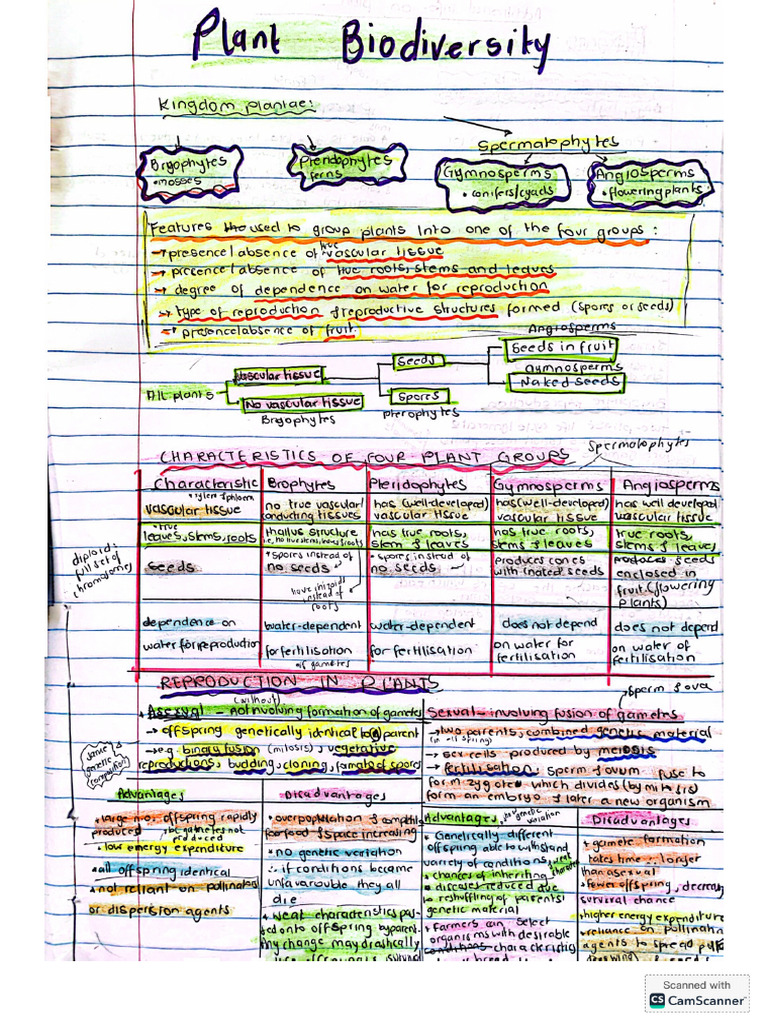 Plant Biodiversity
Kingdom plantae:
Spermatophytes
Bryophytes
• mosses
Pteridophytes
ferns
Gymnosperms
• conifers/cyads
Angiosperms
• flowering plants
Features used to group plants into one of the four groups:
→ presence/absence of true vascular tissue
→ presence/absence of true roots, stems and leaves
→ degree of dependence on water for reproduction
→ type of reproduction & reproductive structures formed (spores or seeds)
→ presence/absence of fruit.
Angiosperms
Seeds in fruit
Seeds
Gymnosperms
Vascular tissue
Naked seeds
All plants
Spores
No vascular tissue
Pterophytes
Bryophytes
Spermatophytes
CHARACTERISTICS OF FOUR PLANT GROUPS
Characteristic
Brophytes
Pteridophytes
Gymnosperms
Angiosperms
• xylem & phloem
vascular tissue
no true vascular/
conducting tissues
has (well-developed)
vascular tissue
has (well-developed)
vascular tissue
has well developed
vascular tissue
• true
leaves, stems, roots
thallus structure
i.e, no true stems, leaves & roots
has true roots,
stem & leaves
has true roots,
stems & leaves
true roots,
stems & leaves
diploid:
full set of
chromosomes
seeds
• spores instead of
no seeds
have rhizoids
instead of
roots
• spores instead of
no seeds
produces cones
with (naked) seeds
produces seeds
enclosed in
fruit (flowering
plants)
dependence on
water for reproduction
water-dependent
for fertilisation
of gametes
water-dependent
for fertilisation
does not depend
on water for
fertilisation
does not depend
on water of
fertilisation
REPRODUCTION IN PLANTS
(without)
Asexual - not involving formation of gametes
→ offspring genetically identical to parent
→ e.g. binary fusion (mitosis), vegetative
reproductions, budding, cloning, format of spores
same
genetic
composition
sperm & ova
Sexual - involving fusion of gametes
→ two parents, combined genetic material
→ sex cells produced by meiosis
→ fertilisation: sperm & ovum fuse to
form zygote which divides (by mitosis)
form an embryo & later a new organism
Advantages
• large no. of offspring rapidly
produced
bc gametes not
produced
• low energy expenditure
• all offspring identical
• not reliant on pollinators
or dispersion agents
Disadvantages
• overpopulation &
for food & space increasing
• no genetic variation
∴ if conditions become
unfavourable they all
die
• weak characteristics pas-
sed onto offspring by parent.
Any change may drastically
Advantages
genetic variation
• Genetically different
offspring able to withstand
variety of conditions
• chances of inheriting weak
diseases reduced due
to reshuffling of parents'
genetic material
• Farmers can select
organisms with desirable
characteristic
Disadvantages
• gamete formation
takes time ∴ longer
than asexual
• fewer offspring, decreasing
survival chance
• higher energy expenditure
• reliance on pollination
agents to spread
Scanned with
CS CamScanner